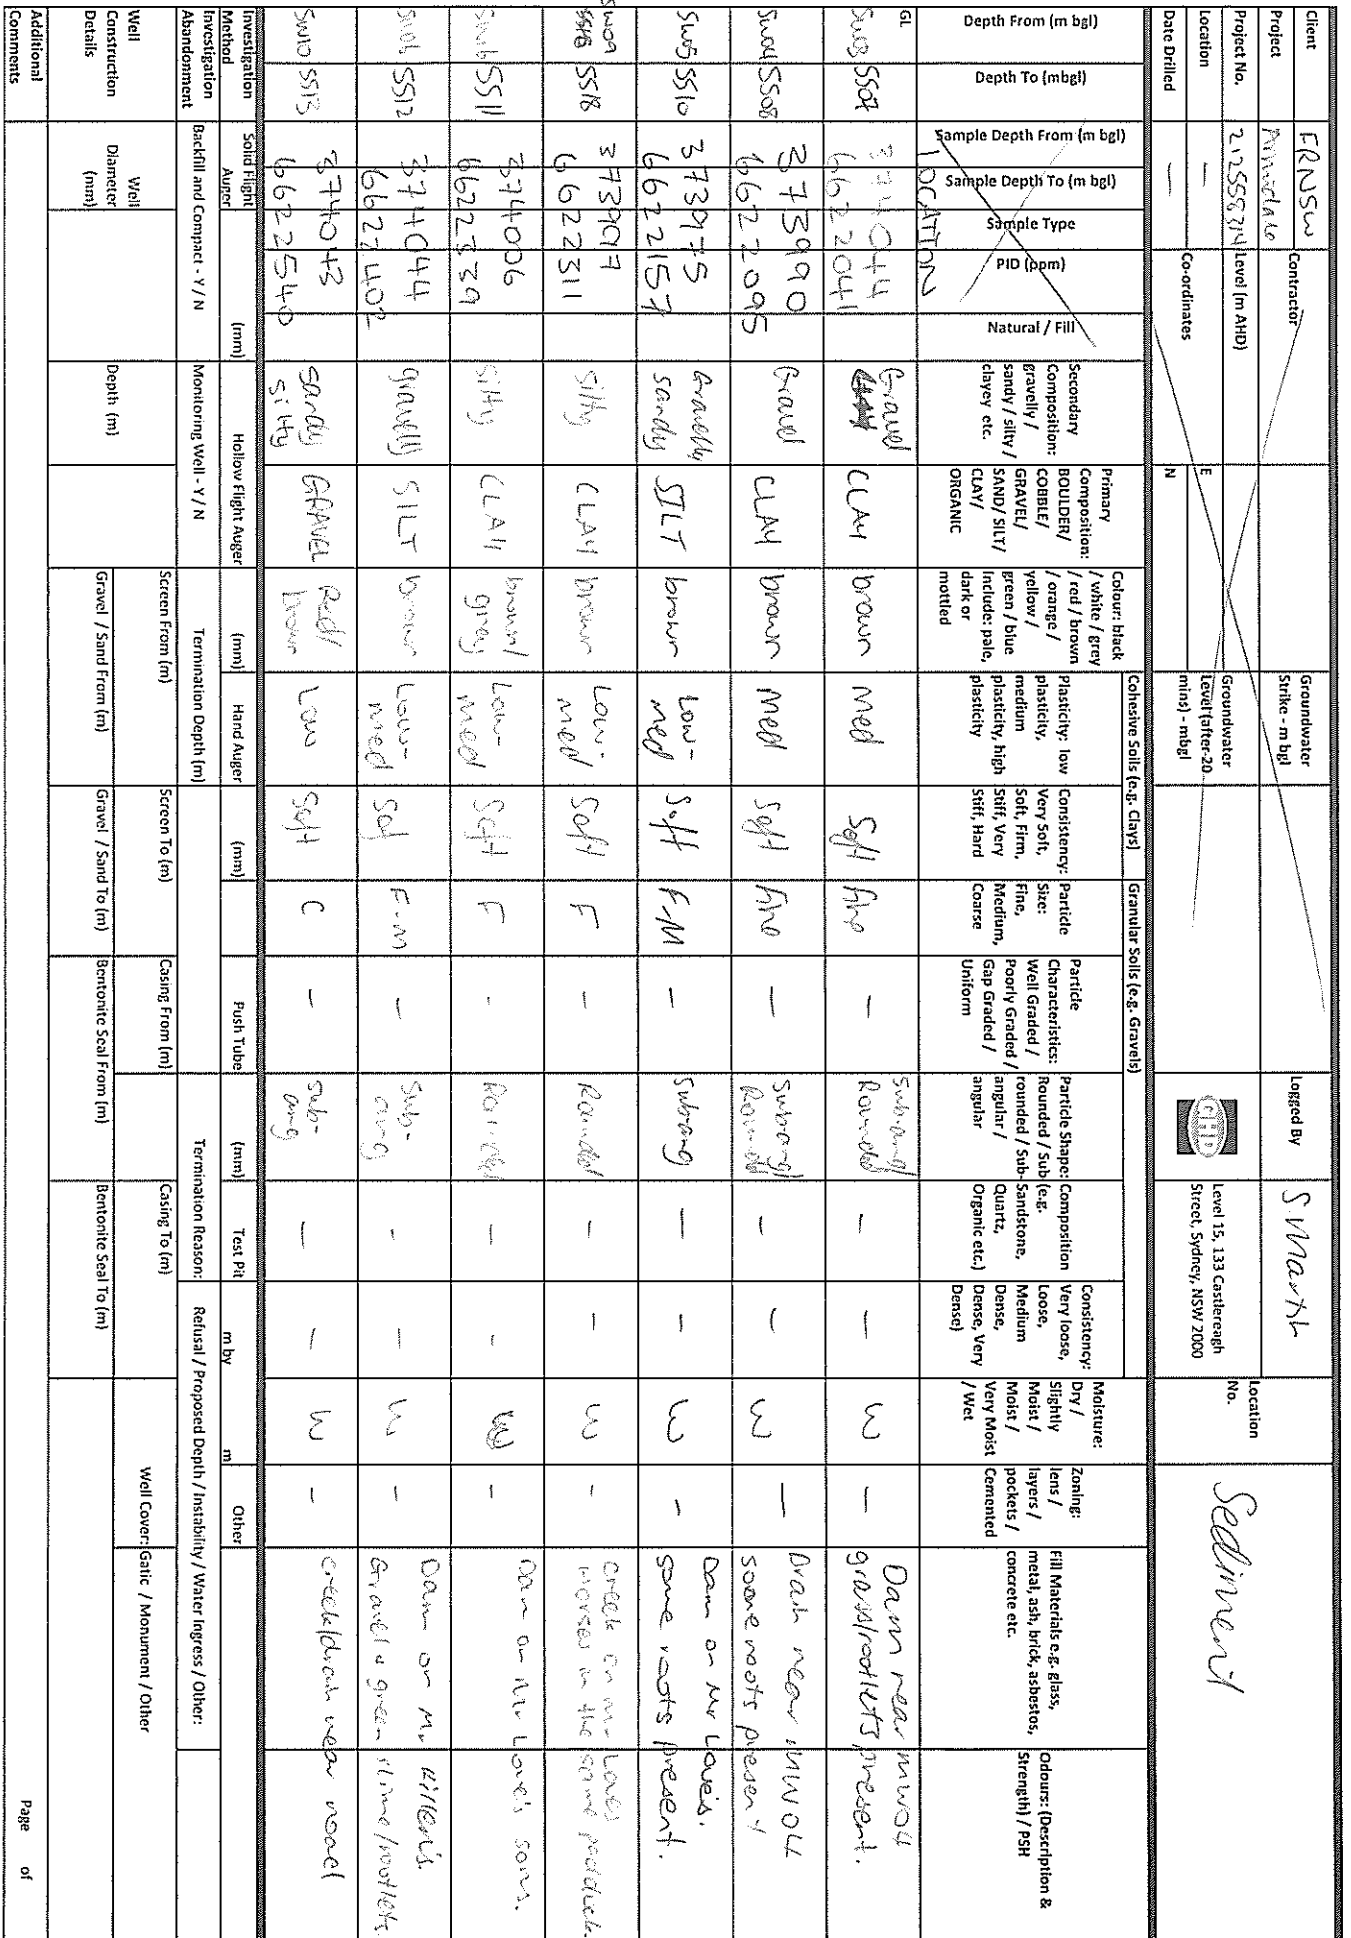 Client FRNSW Contractor Groundwater Strike - m bgl Logged By Location No. Sediment
Project Armidale
Project No. 212558714 Level (m AHD) E Groundwater Level (after 20 mins) - mbgl GHD Level 15, 133 Castlereagh Street, Sydney, NSW 2000
Location — Co-ordinates N
Date Drilled —
Cohesive Soils (e.g. Clays) Granular Soils (e.g. Gravels)
Depth From (m bgl)
Depth To (mbgl)
Sample Depth From (m bgl)
Sample Depth To (m bgl)
Sample Type
PID (ppm)
Natural / Fill
LOCATION
Secondary Composition: gravelly / sandy / silty / clayey etc.
Primary Composition: BOULDER/ COBBLE/ GRAVEL/ SAND/ SILT/ CLAY/ ORGANIC
Colour: black / white / grey / red / brown / orange / yellow / green / blue Include: pale, dark or mottled
Plasticity: low plasticity, medium plasticity, high plasticity
Consistency: Very Soft, Soft, Firm, Stiff, Very Stiff, Hard
Particle Size: Fine, Medium, Coarse
Particle Characteristics: Well Graded / Poorly Graded / Gap Graded / Uniform
Particle Shape: Rounded / Sub rounded / Sub-angular / angular
Composition (e.g. Sandstone, Quartz, Organic etc.)
Consistency: Very loose, Loose, Medium Dense, Dense, Very Dense)
Moisture: Dry / Slightly Moist / Moist / Very Moist / Wet
Zoning: lens / layers / pockets / Cemented
Fill Materials e.g. glass, metal, ash, brick, asbestos, concrete etc.
Odours: (Description & Strength) / PSH
GL
SS07 374044 6622041 Gravel CLAY brown med Soft fine — Subang/ Rounded — — W — Dam near MW04 grass/rootlets present.
SW04 SS08 373990 6622095 Gravel CLAY brown med Soft fine — Subang/ Rounded — — W — Drain near MW04 some roots present
SW05 SS10 373975 6622157 Gravelly sandy SILT brown Low-med Soft F-M — Subang — — W — Dam on Mr Love's. some roots present.
SW09 SS18 373997 6622311 Silty CLAY brown Low-med Soft F — Rounded - — W - creek on Mr Loves horses in the same paddock.
SS11 374006 6622339 Silty CLAY brown/ gray Low-med Soft F - Rounded — - W - Dam on Mr Love's sons.
SS12 374044 6622402 gravelly SILT brown Low-med Sof F-M — Sub-ang - — W — Dam on Mr Killen's. Gravel & green slime/rootlets.
SW10 SS13 374043 6622540 Sandy silty GRAVEL Red/ brown Low Soft C — Sub-ang — — W — creek/drain near road
Investigation Method Solid Flight Auger (mm) Hollow Flight Auger (mm) Hand Auger (mm) Push Tube (mm) Test Pit m by m Other
Investigation Abandonment Backfill and Compact - Y / N Monitoring Well - Y / N Termination Depth (m) Termination Reason: Refusal / Proposed Depth / Instability / Water Ingress / Other:
Well Construction Details Well Diameter (mm) Depth (m) Screen From (m) Screen To (m) Casing From (m) Casing To (m) Well Cover: Gatic / Monument / Other
Gravel / Sand From (m) Gravel / Sand To (m) Bentonite Seal From (m) Bentonite Seal To (m)
Additional Comments
Page of